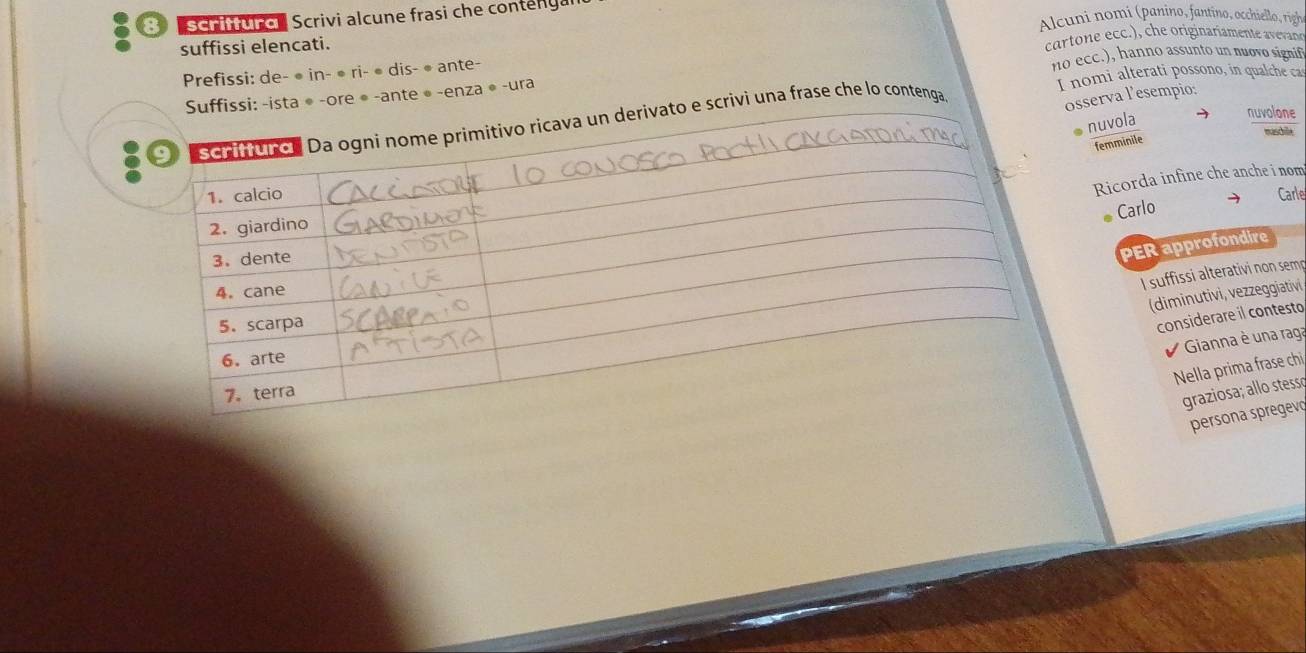 8 scrittura Scrivi alcune frasi che
suffissi elencati.
Prefissi: de- • in- • ri- • dis- • ante-
Suffissi: -ista • -ore • -ante • -enza • -ura
9 scrittura Da ogni nome primitivo ricava un derivato e scrivi una frase che lo contenga.
1. calcio CALCIATORE IO CONOSCO
2. giardino
3. dente DENTISTA
4. cane CANILE
5. scarpa SCARPAIO
6. arte ARTISTA
7. terra
Alcuni nomi (panino, fantino, occhiello,
cartone ecc.), che originariamente avevano
no ecc.), hanno assunto un nuovo
I nomi alterati possono, in qualche
osserva l'esempio:
• nuvola → nuvolone
femminile maschile
Ricorda infine che anche i
• Carlo →
PER approfondire
I suffissi alterativi non
(diminutivi, vezzeggiativi
considerare il contesto
✔ Gianna è una
Nella prima frase
graziosa; allo
persona